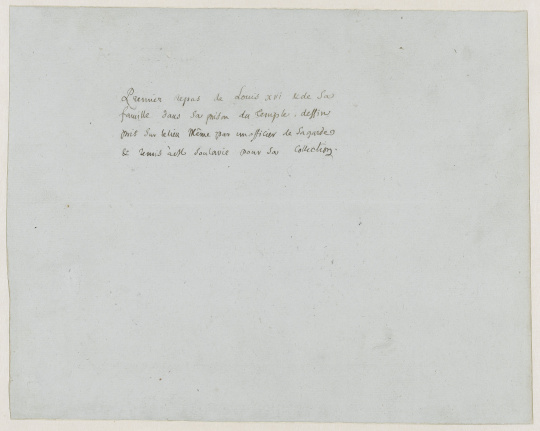 Premier repas de Louis xvi & de sa
famille dans sa prison du temple. dessins
pris sur le lieu même par un officier de sa garde
& remis à Mr Soulavie pour sa Collection.